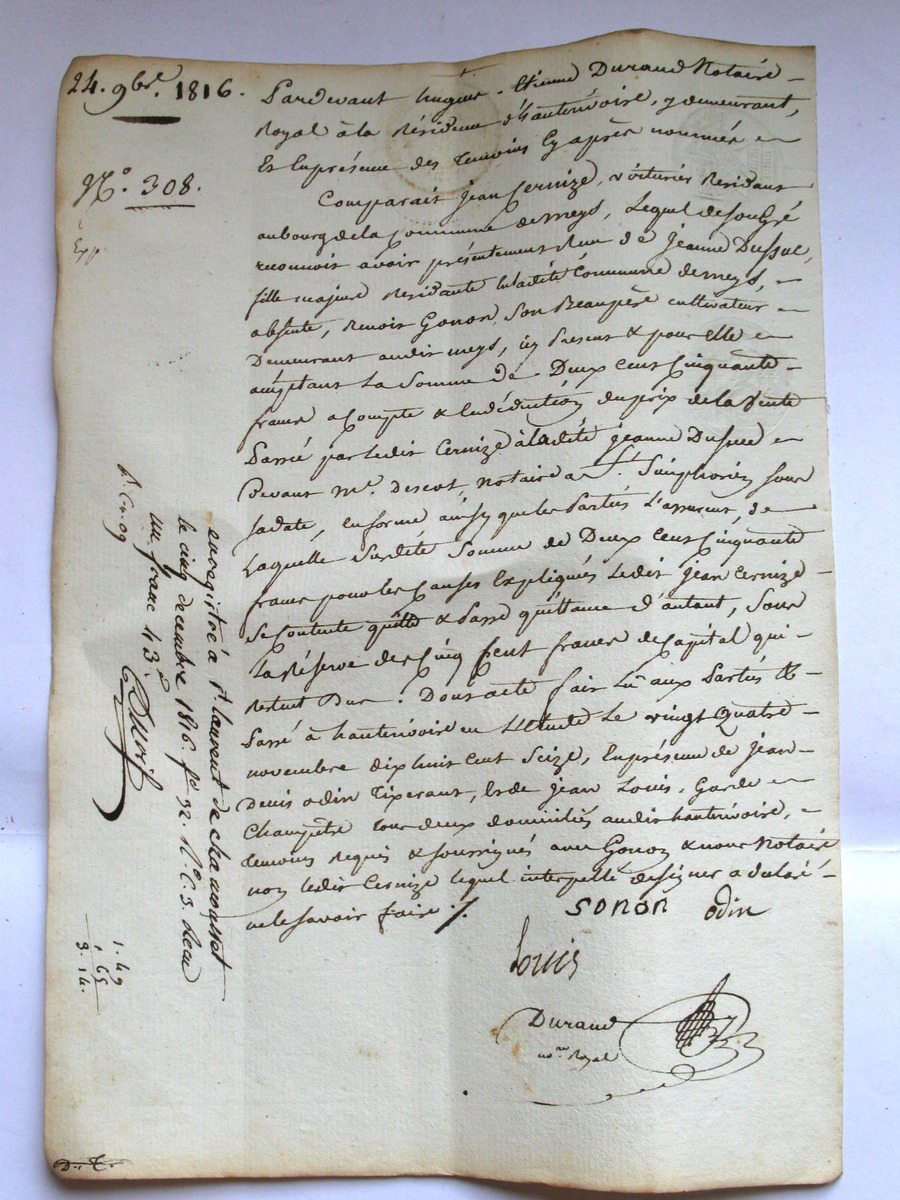 24. 9bre. 1816.
N.o 308.
Exp
Pardevant hugues-Etienne Durand Notaire
Royal à la Résidence d'hauterivoire, y demeurant,
Et Enprésence des Temoins Cy après nommés
Comparait jean Cernize, voiturier Residant
aubourg dela Commune demeys, Lequel desongré
reconnoit avoir présentement Reçu de jeanne Dussuc,
fille majeure Residante Enladite Commune demeys,
absente, Benoit Gonon, son Beaupère cultivateur
Demeurant audit meys, icy present & pour elle
acceptant La Somme de Deux Cent Cinquante
francs acompte & Endéduction duprix dela Vente
Passé par ledit Cernize à ladite jeanne Dussuc
Devant Me. Descot, Notaire a St. Simphorien sous
sadate, Enforme ainsy que les Parties L'assurent, de
Laquelle Susdite Somme de Deux Cent Cinquante
francs pour les Causes Expliqués Ledit jean Cernize
Se Contente quitte & Passe quittance d'autant, Sous
La Réserve des Cinq Cent francs de Capital qui
Restent Dus. Dont acte fait Lu aux Parties &
Passé à hauterivoire en L'étude Le vingt Quatre
novembre dix huit Cent Seize, Enprésence de jean
Denis odin Tixerant, & de jean Louis, Garde
Champêtre tous deux domiciliés audit hauterivoire,
temoins requis & soussignés avec Gonon & nous Notaire
non ledit Cernize lequel interpellé designer a declaré
nelesavoir faire ./.
Gonon odin
Louis
Durand
nore Royal
enregistré à St laurent de chamousset
le cinq decembre 1816. fo 32. Ro C. 3. Recu
un franc 43
1. 49
1. 65
3. 14.
D. T.